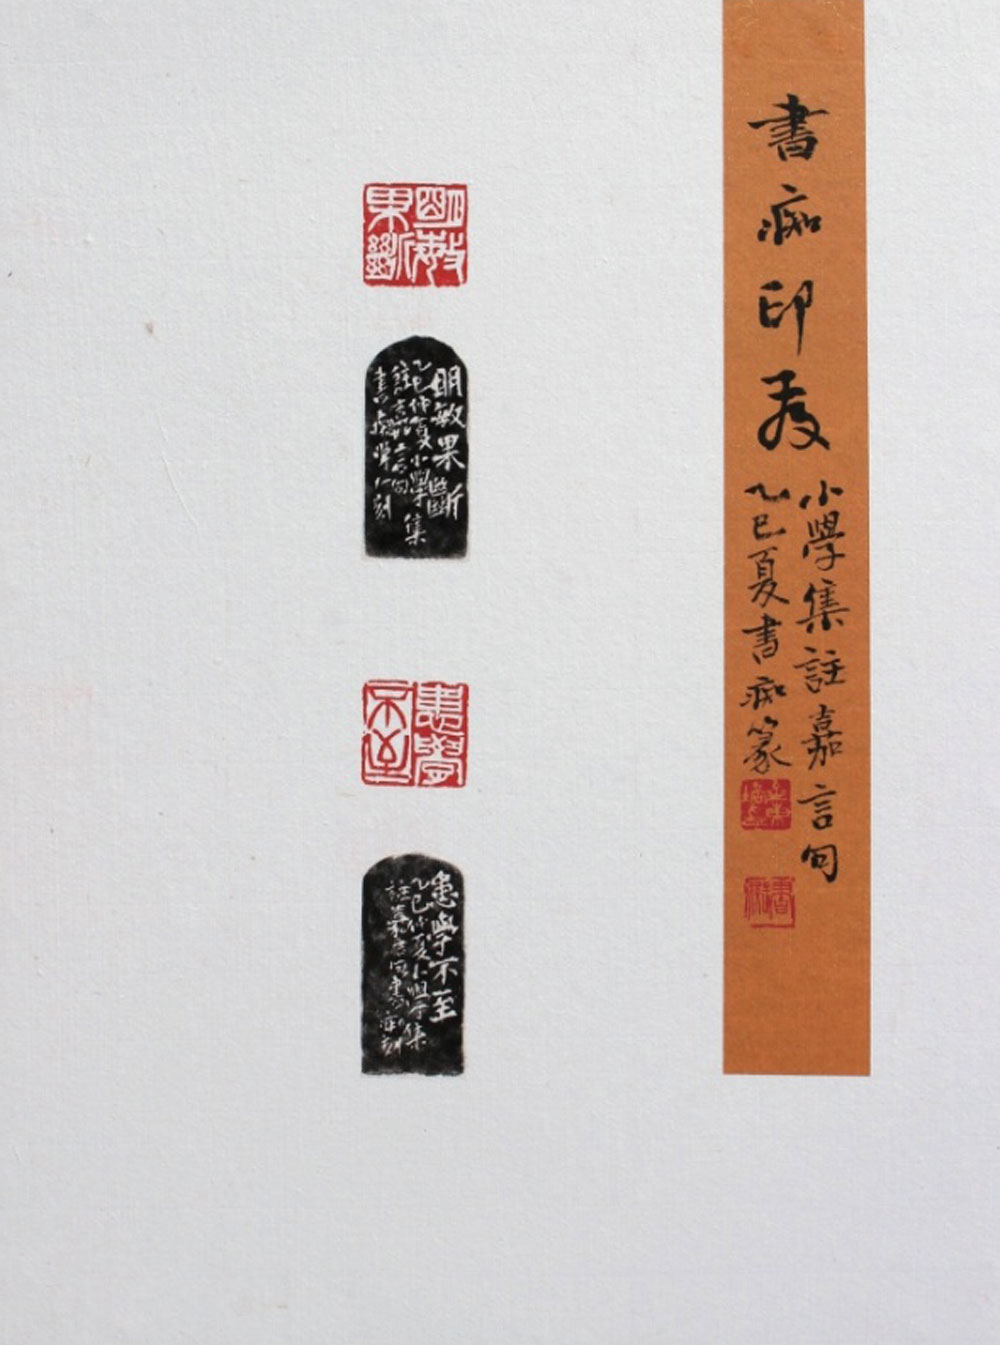 書痴印
小學集註嘉言句
乙巳夏書痴篆
明敏
果斷
明敏果斷
乙巳仲夏小學集
註嘉言句
書痴
刻
患學
不至
患學不至
乙巳仲夏小學集
註嘉言句書痴刻